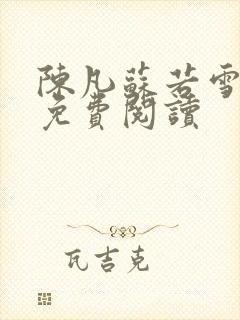 陳凡蘇若雪
免費閱讀
瓦吉克